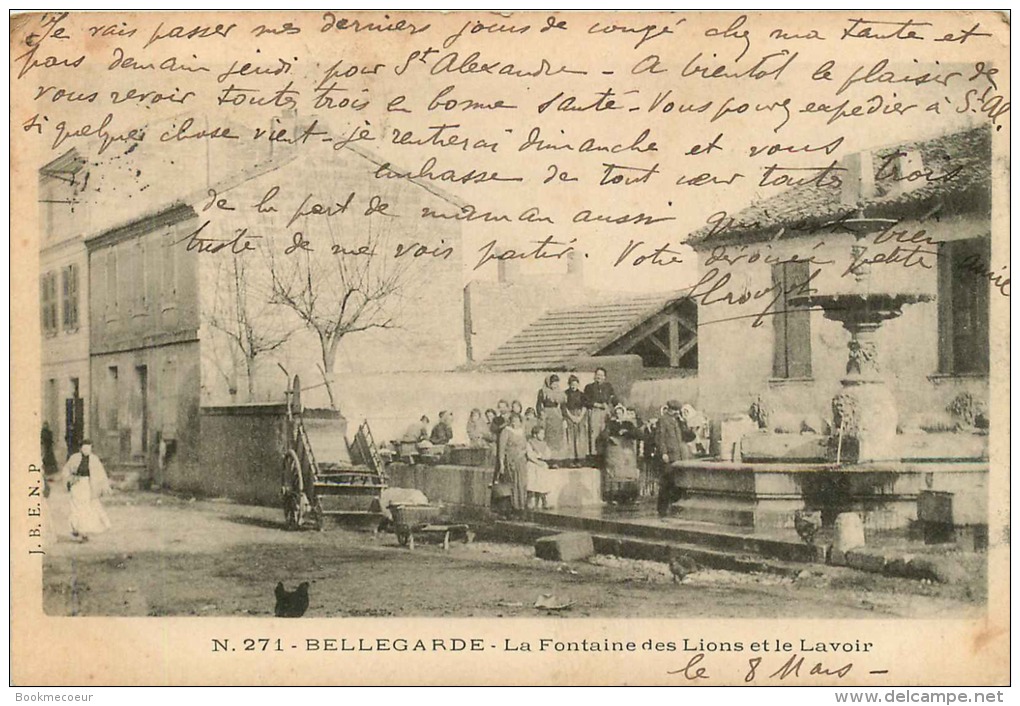 Je vais passer mes derniers jours de congé chez ma tante et
pars demain jeudi pour St Alexandre - A bientôt le plaisir de
vous revoir toutes trois en bonne santé - Vous pouvez expédier à St Al
si quelque chose vient - je rentrerai dimanche et vous
embrasse de tout cœur toutes trois
de la part de maman aussi qui est bien
triste de me voir partir. Votre dévouée petite amie
J. B. E. N. P
N. 271 - BELLEGARDE - La Fontaine des Lions et le Lavoir
le 8 Mars -
Bookmecoeur
http://www.delcampe.net